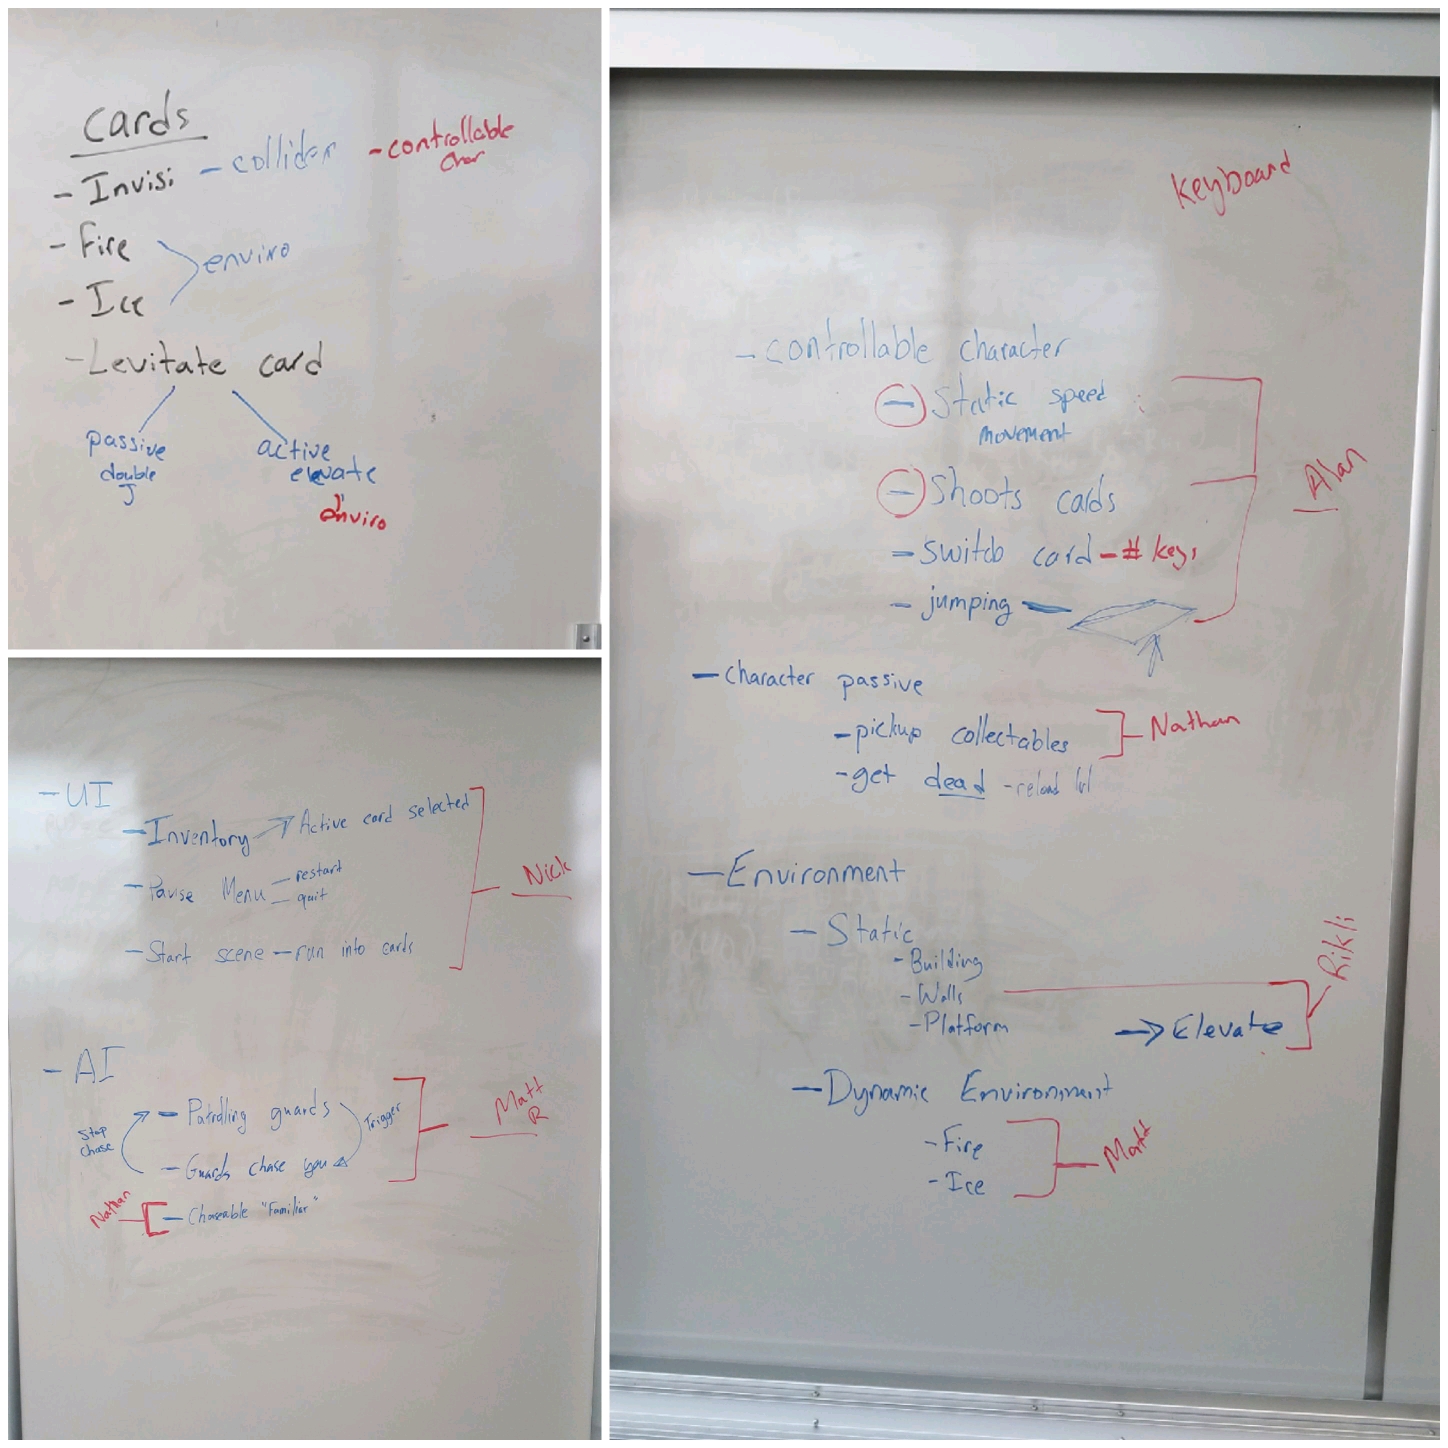 Cards
- Invisi - collider - controllable
char
- Fire
enviro
- Ice
- Levitate card
passive
double
J
active
elevate
enviro
- UI
- Inventory Active card selected
- Pause Menu - restart
- quit
- Start scene - run into cards
Nick
- AI
- Patrolling guards
Trigger
Stop
chase
- Guards chase you
Matt
R
Nathan
- Chaseable "Familiar"
Keyboard
- controllable character
- Static speed
movement
- Shoots cards
- switch card - # keys
- jumping
Alan
- character passive
- pickup collectables
Nathan
- get dead - reload lvl
- Environment
- Static
- Building
- Walls
- Platform
Elevate
Rikli
- Dynamic Environment
- Fire
- Ice
Matt